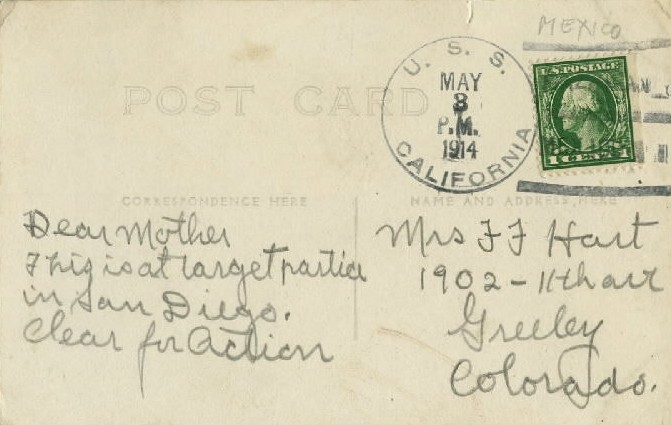 MEXICO
U. S. S.
MAY
8
P.M.
1914
CALIFORNIA
U.S. POSTAGE
1 CENT 1
POST CARD
CORRESPONDENCE HERE
NAME AND ADDRESS HERE
Dear Mother
This is at target partice
in San Diego.
Clear for Action
Mrs F F Hart
1902-11th ave
Greeley
Colorado.